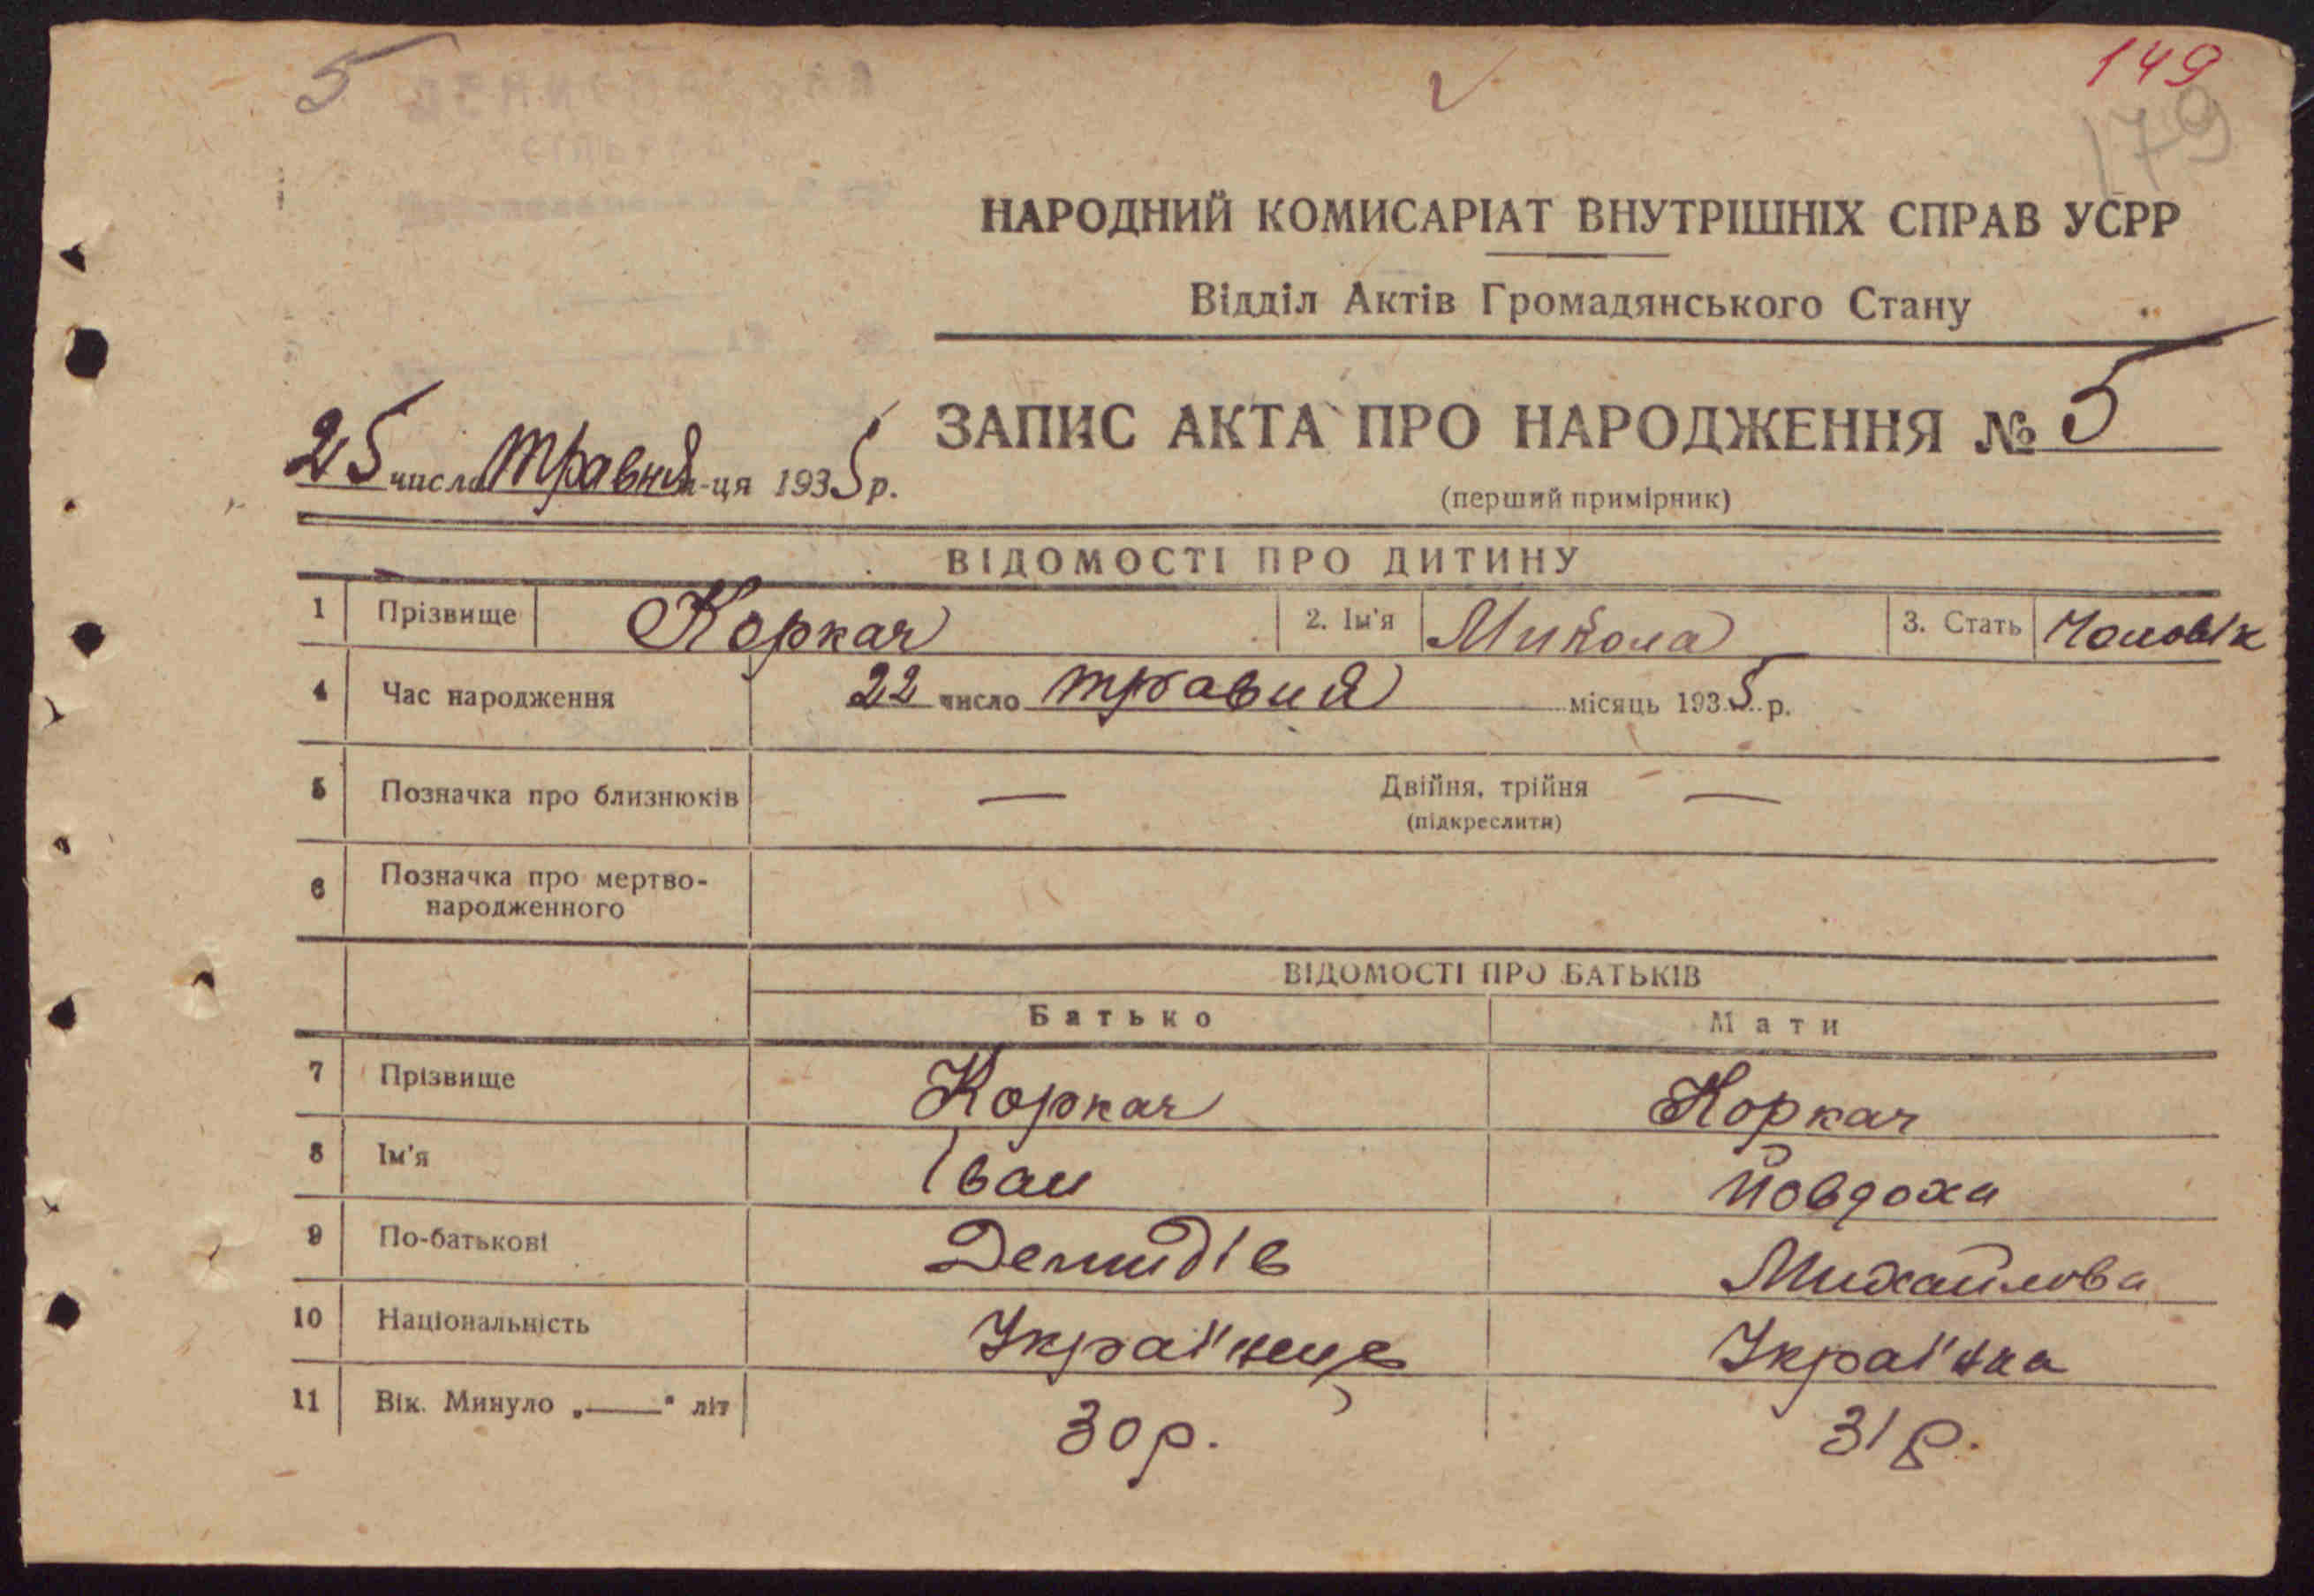 5
149
179
НАРОДНИЙ КОМИСАРІАТ ВНУТРІШНІХ СПРАВ УСРР
Відділ Актів Громадянського Стану
ЗАПИС АКТА ПРО НАРОДЖЕННЯ № 5
25 числа травня м-ця 1935 р.
(перший примірник)
ВІДОМОСТІ ПРО ДИТИНУ
1 Прізвище Коркач 2. Ім'я Микола 3. Стать Чоловік
4 Час народження 22 число травня місяць 1935 р.
5 Позначка про близнюків — Двійня, трійня —
(підкреслити)
6 Позначка про мертво-
народженного
ВІДОМОСТІ ПРО БАТЬКІВ
Батько Мати
7 Прізвище Коркач Коркач
8 Ім'я Іван Йовдоха
9 По-батькові Демидів Михайлова
10 Національність Українець Українка
11 Вік. Минуло „——“ літ 30 р. 31 р.